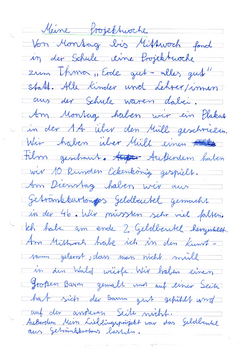 Meine Projektwoche
Von Montag bis Mittwoch fand
in der Schule eine Projektwoche
zum Thma „Erde gut - alles gut"
statt. Alle Kinder und Lehrer/innen
aus der Schule waren dabei.
Am Montag haben wir ein Plakat
in der 1A über den Müll geschrieben.
Wir haben über Müll einen
Film geschaut. Außerdem haben
wir 10 Runden Eckenkönig gespielt.
Am Dienstag haben wir aus
Getränkkartons Geldbeutel gemacht
in der 4b. Wir müssten sehr viel falten.
Ich habe am ende 2 Geldbeutel hergestellt.
Am Mittwoch habe ich in den Kunst-
raum gelernt, dass man nicht müll
in den Wald würfe. Wir haben einen
Großen Baum gemalt und auf einer Seite
hat sich der Baum gut gefühlt und
auf der anderen Seite nicht.
Außerdem Mein Lieblingsprojekt war das Geldbeutel
aus Getränkkartons basteln.